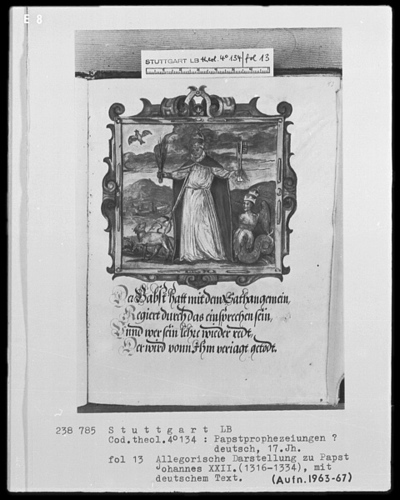 E 8
STUTTGART LB theol. 4° 134 / fol 13
Der Babst hatt mit dem Sathan gemein,
Regiert durch das einsprechen sein,
Vnnd wer sein lehre wieder redt,
Der wird vonn Ihm veriagt getödt.
238 785 Stuttgart LB
Cod.theol.4° 134 : Papstprophezeiungen ?
deutsch, 17.Jh.
fol 13 Allegorische Darstellung zu Papst
Johannes XXII.(1316-1334), mit
deutschem Text. (Aufn.1963-67)